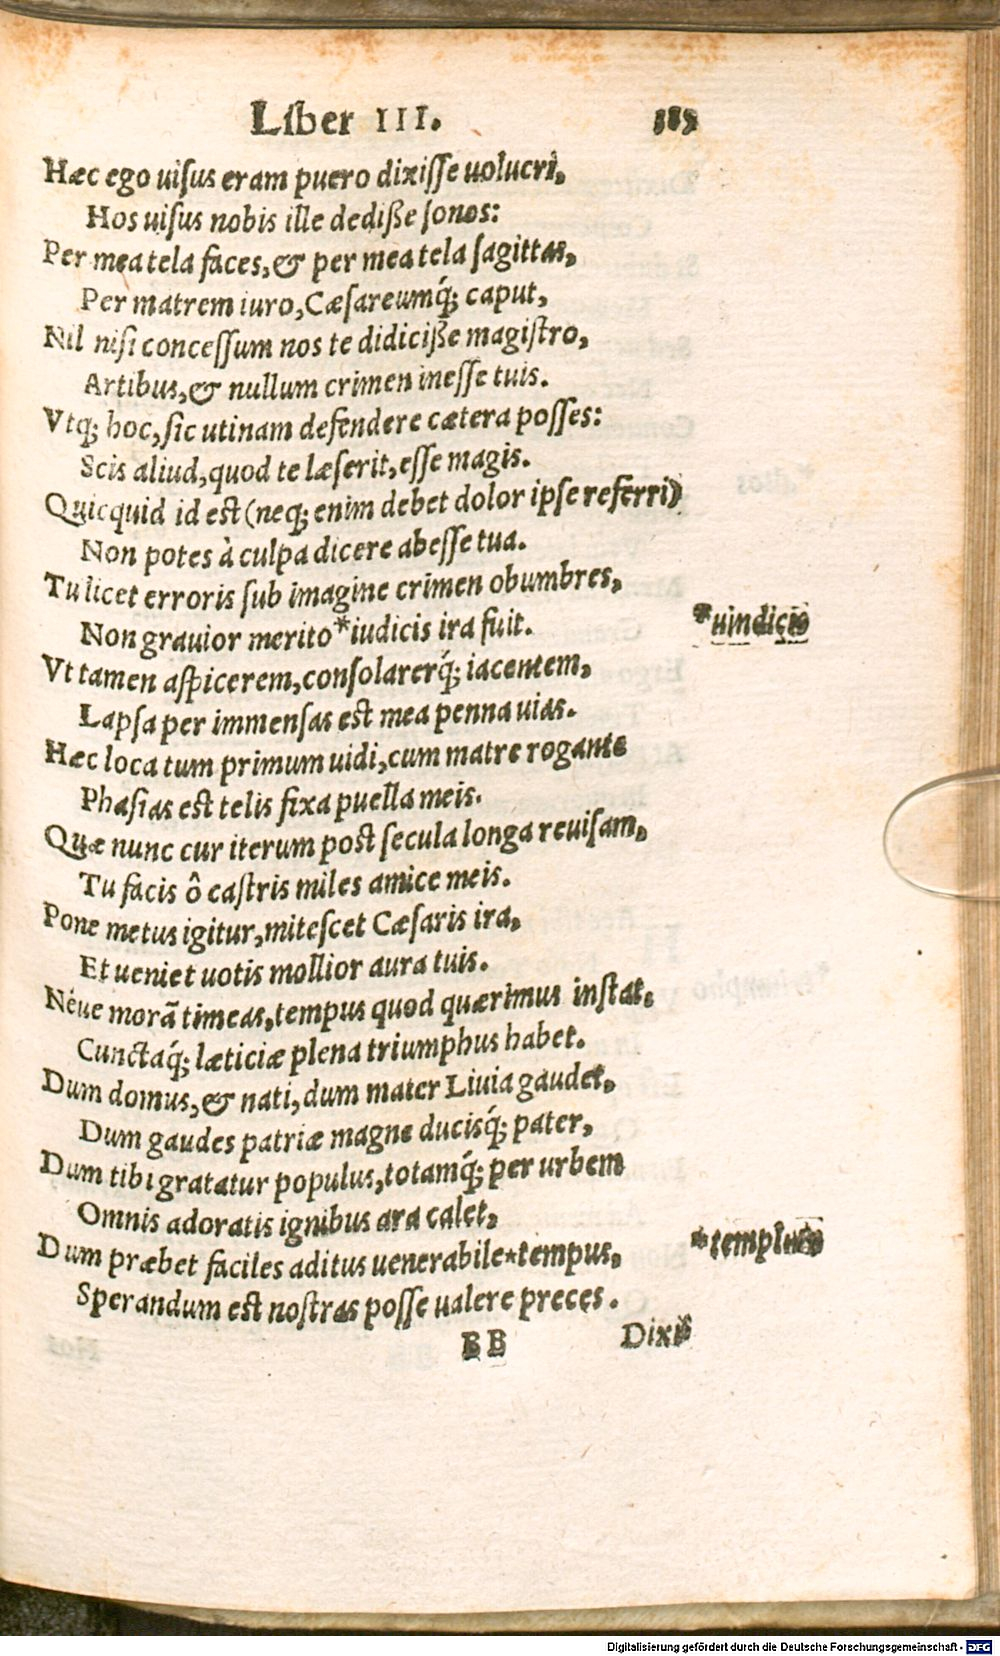 Liber III.
Hæc ego uiſus eram puero dixiſſe uolucri,
Hos uiſus nobis ille dediße ſonos:
Per mea tela faces, & per mea tela ſagittas,
Per matrem iuro, Cæſareumq́; caput,
Nil niſi conceſſum nos te didiciße magiſtro,
Artibus, & nullum crimen ineſſe tuis.
Vtq; hoc, ſic utinam defendere cætera poſſes:
Scis aliud, quod te læſerit, eſſe magis.
Quicquid id eſt (neq; enim debet dolor ipſe referri)
Non potes à culpa dicere abeſſe tua.
Tu licet erroris ſub imagine crimen obumbres,
Non grauior merito *iudicis ira fuit. *uindicis
Vt tamen aſpicerem, conſolarerq́; iacentem,
Lapſa per immenſas eſt mea penna uias.
Hæc loca tum primum uidi, cum matre rogante
Phaſias eſt telis fixa puella meis.
Quæ nunc cur iterum poſt ſecula longa reuiſam,
Tu facis ô caſtris miles amice meis.
Pone metus igitur, miteſcet Cæſaris ira,
Et ueniet uotis mollior aura tuis.
Néue morã timeas, tempus quod quærimus inſtat,
Cunctaq́; læticiæ plena triumphus habet.
Dum domus, & nati, dum mater Liuia gaudet,
Dum gaudes patriæ magne ducisq́; pater,
Dum tibi gratatur populus, totamq́; per urbem
Omnis adoratis ignibus ara calet,
Dum præbet faciles aditus uenerabile *tempus, *templum
Sperandum eſt noſtras poſſe ualere preces.
BB Dixit
Digitalisierung gefördert durch die Deutsche Forschungsgemeinschaft - DFG